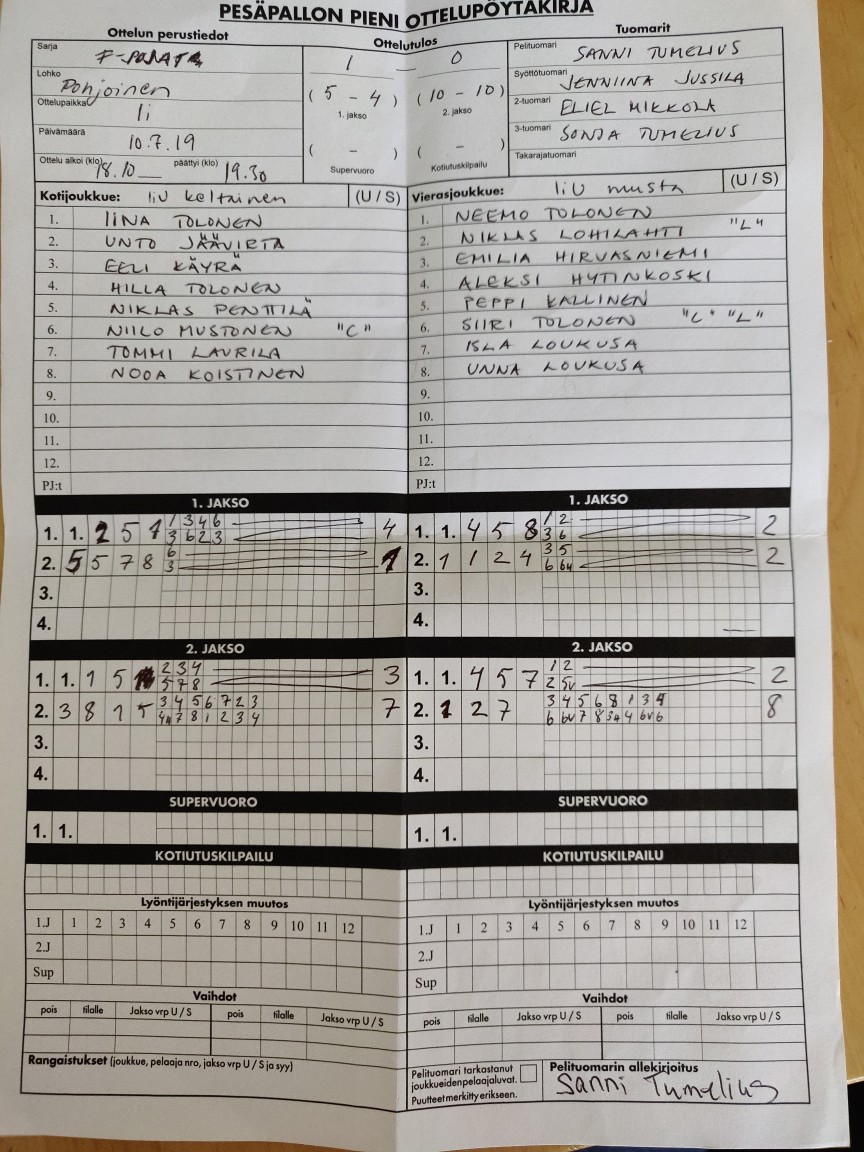 PESÄPALLON PIENI OTTELUPÖYTÄKIRJA
Ottelun perustiedot
Ottelutulos
Tuomarit
Sarja
Lohko Pohjoinen
Ottelupaikka Ii
Päivämäärä 10.7.19
Ottelu alkoi (klo) 18.10 päättyi (klo) 19.30
1 – 0
( 5 – 4 ) ( 10 – 10 )
1. jakso 2. jakso
( – ) ( – )
Supervuoro Kotiutuskilpailu
Pelituomari SANNI TUMELIUS
Syöttötuomari JENNIINA JUSSILA
2-tuomari ELIEL MIKKOLA
3-tuomari SONJA TUMELIUS
Takarajatuomari
Kotijoukkue: IiU keltainen (U / S)
1. IINA TOLONEN
2. UNTO JÄÄVIRTA
3. EELI KÄYRÄ
4. HILLA TOLONEN
5. NIKLAS PENTTILÄ
6. NIILO MUSTONEN "C"
7. TOMMI LAURILA
8. NOOA KOISTINEN
9.
10.
11.
12.
PJ:t
Vierasjoukkue: IiU musta (U / S)
1. NEEMO TOLONEN
2. NIKLAS LOHILAHTI "L"
3. EMILIA HIRVASNIEMI
4. ALEKSI HYTINKOSKI
5. PEPPI KALLINEN
6. SIIRI TOLONEN "C" "L"
7. ISLA LOUKUSA
8. UNNA LOUKUSA
9.
10.
11.
12.
PJ:t
1. JAKSO
1. 1. 2 5 1 1 3 4 6 4
3 6 2 3
2. 5 5 7 8 6 1
3
3.
4.
1. JAKSO
1. 1. 4 5 8 1 2 2
3 6
2. 1 1 2 4 3 5 2
6 6v
3.
4.
2. JAKSO
1. 1. 1 5 2 3 4 3
5 7 8
2. 3 8 1 5 3 4 5 6 7 2 3 7
7 8 1 2 3 4
3.
4.
2. JAKSO
1. 1. 4 5 7 1 2 2
2 5v
2. 1 2 7 3 4 5 6 8 1 3 4 8
6 6v 7 8 4 6v 6
3.
4.
SUPERVUORO
1. 1.
SUPERVUORO
1. 1.
KOTIUTUSKILPAILU
KOTIUTUSKILPAILU
Lyöntijärjestyksen muutos
1.J 1 2 3 4 5 6 7 8 9 10 11 12
2.J
Sup
Lyöntijärjestyksen muutos
1.J 1 2 3 4 5 6 7 8 9 10 11 12
2.J
Sup
Vaihdot
pois tilalle Jakso vrp U / S pois tilalle Jakso vrp U / S
Vaihdot
pois tilalle Jakso vrp U / S pois tilalle Jakso vrp U / S
Rangaistukset (joukkue, pelaaja nro, jakso vrp U / S ja syy)
Pelituomari tarkastanut
joukkueidenpelaajaluvat.
Puutteet merkitty erikseen.
Pelituomarin allekirjoitus
Sanni Tumelius